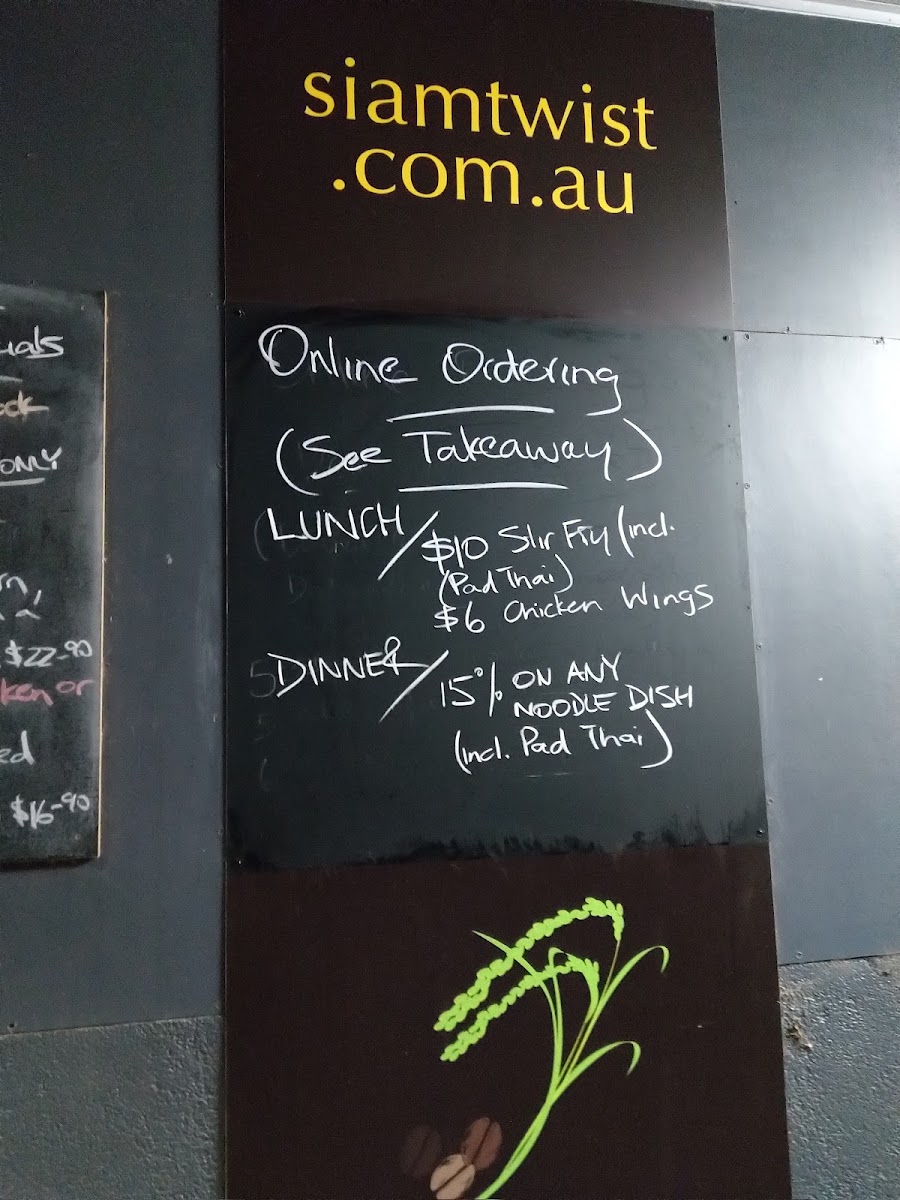 siamtwist
.com.au
Online Ordering
(See Takeaway)
LUNCH/
$10 Stir Fry (incl.
(Pad Thai)
$6 Chicken Wings
DINNER/
15% ON ANY
NOODLE DISH
(incl. Pad Thai)
ONLY
$22-90
or
$16-90